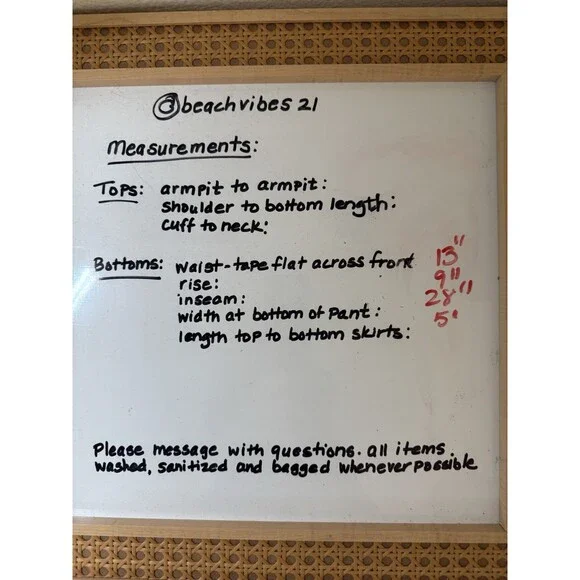 @beachvibes 21
Measurements:
Tops: armpit to armpit:
shoulder to bottom length:
cuff to neck:
Bottoms: waist-tape flat across front 13"
rise: 9"
inseam: 28"
width at bottom of pant: 5"
length top to bottom skirts:
Please message with questions. all items
washed, sanitized and bagged whenever possible